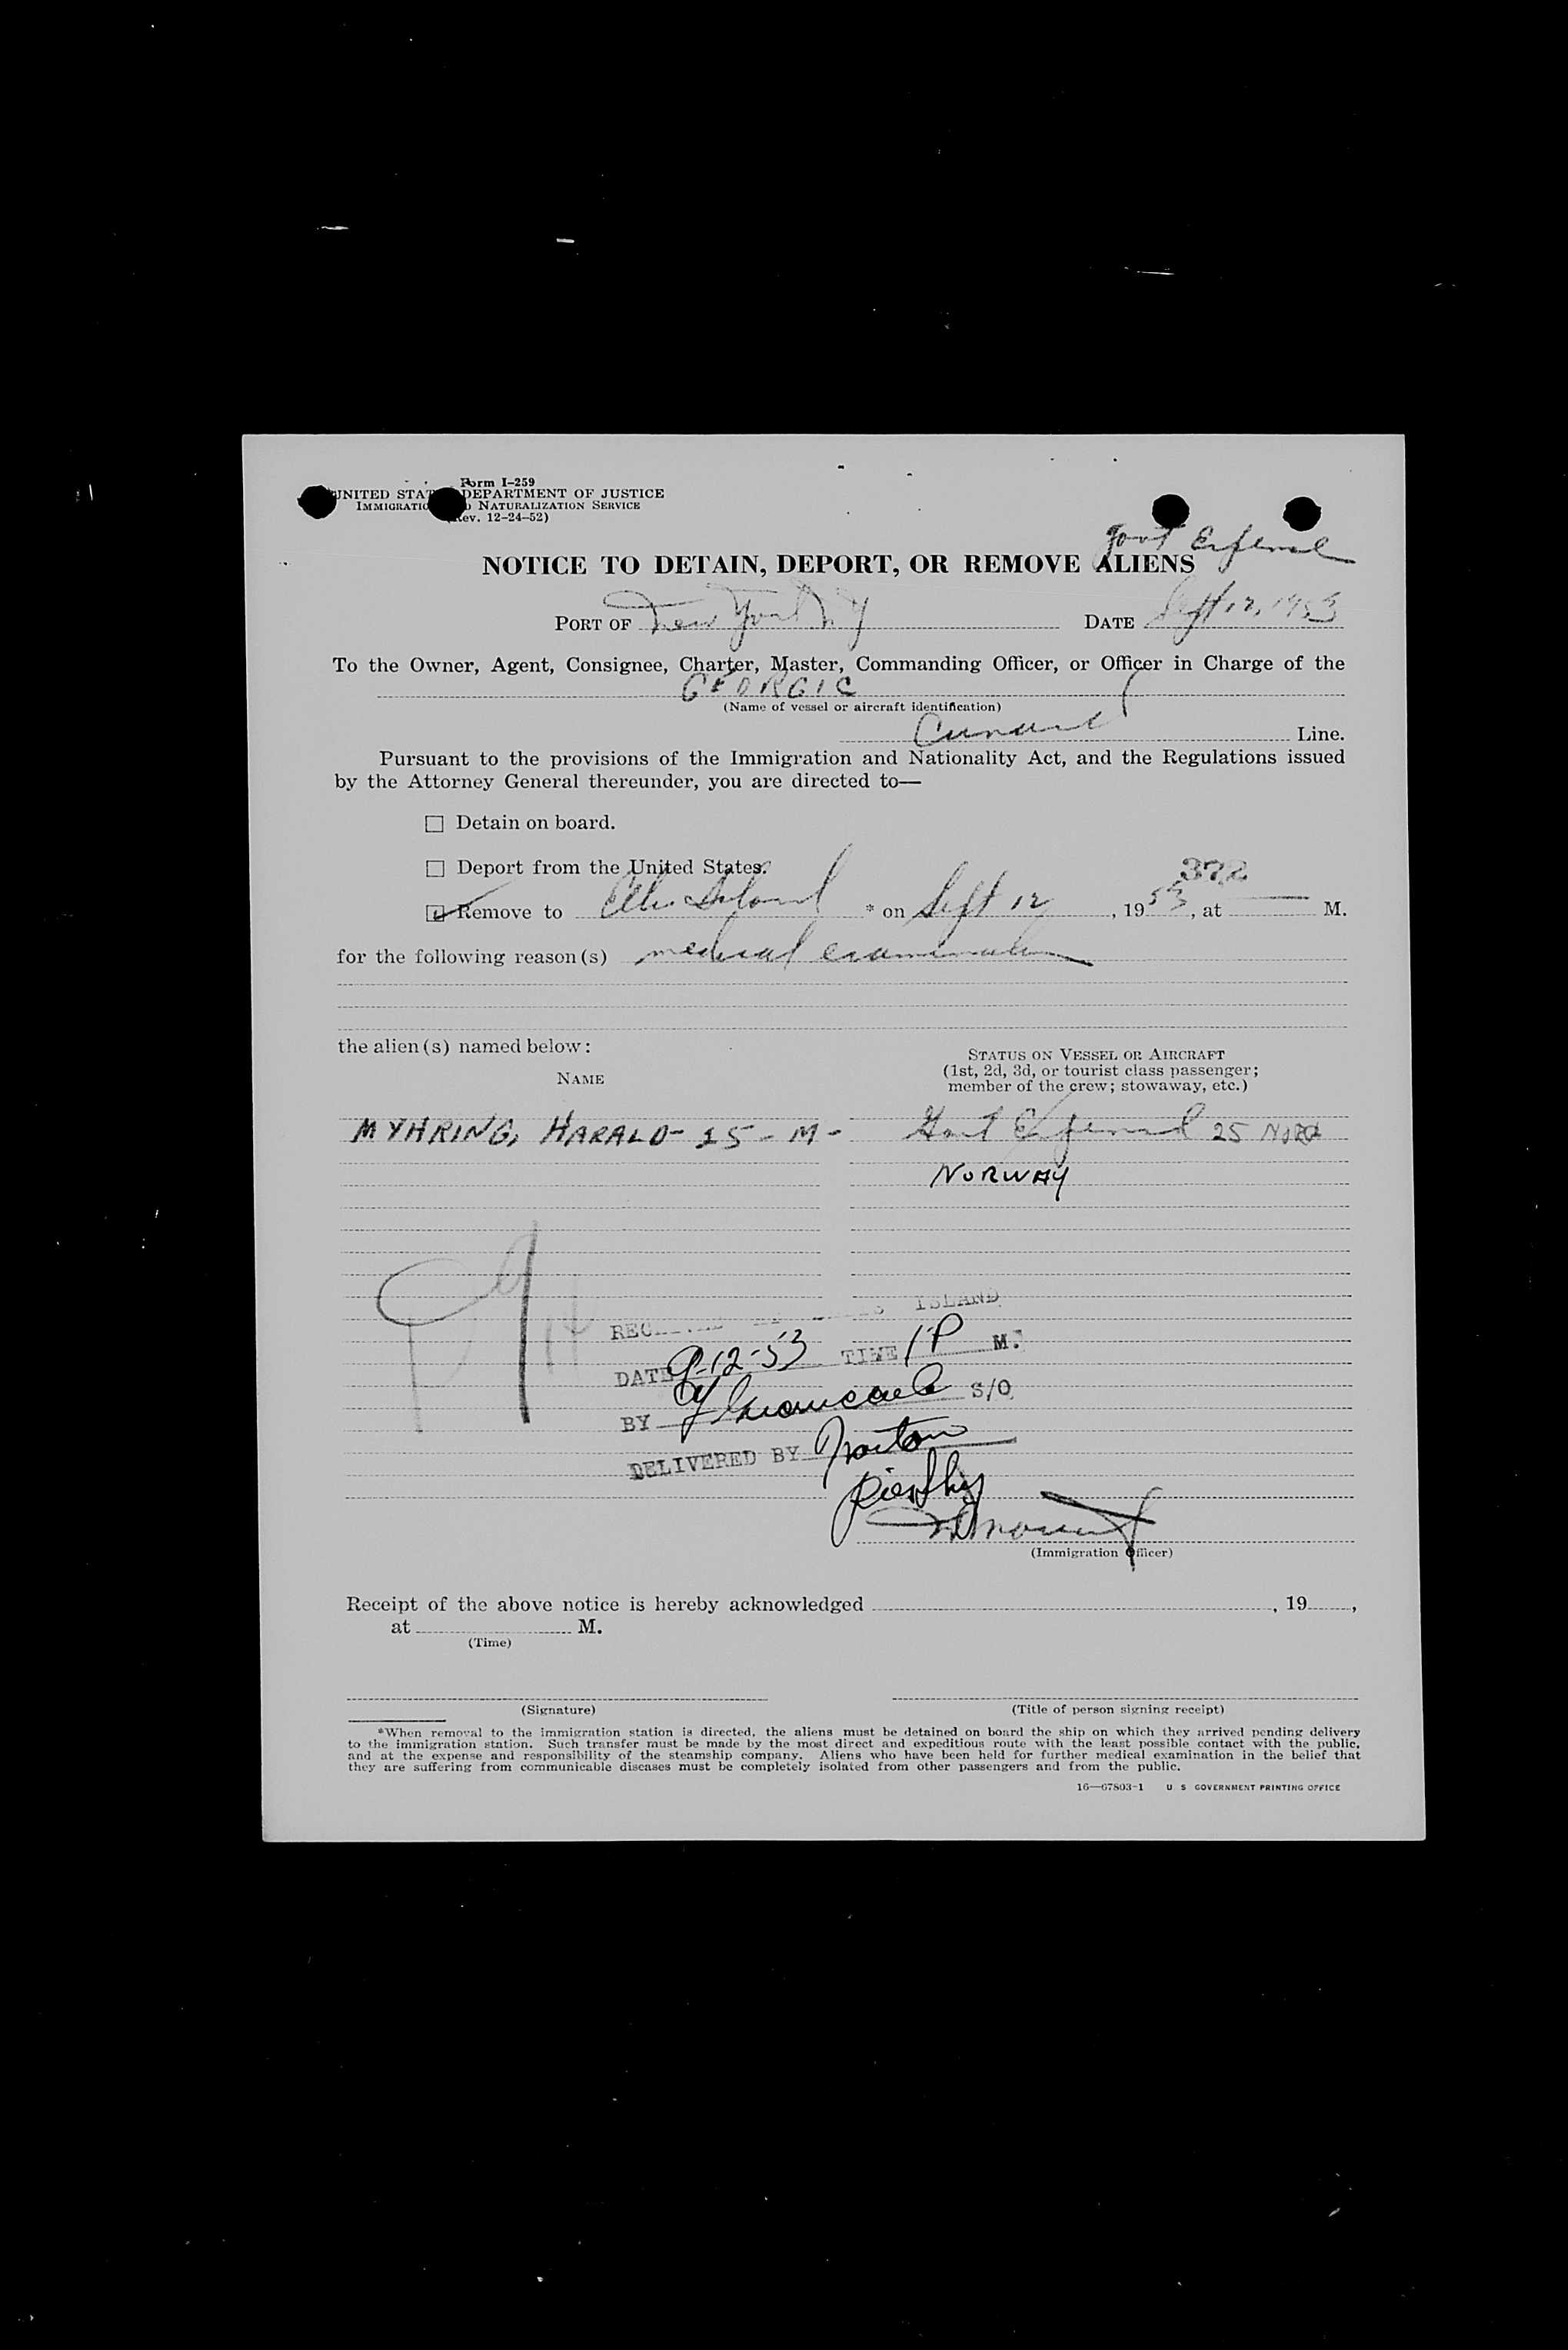 Form I-259
UNITED STATES DEPARTMENT OF JUSTICE
IMMIGRATION AND NATURALIZATION SERVICE
(Rev. 12-24-52)
Govt Expense
NOTICE TO DETAIN, DEPORT, OR REMOVE ALIENS
PORT OF New York NY DATE Sept 12, 1953
To the Owner, Agent, Consignee, Charter, Master, Commanding Officer, or Officer in Charge of the
GEORGIC
(Name of vessel or aircraft identification)
Cunard Line.
Pursuant to the provisions of the Immigration and Nationality Act, and the Regulations issued
by the Attorney General thereunder, you are directed to—
Detain on board.
Deport from the United States.
372
Remove to Ellis Island * on Sept 12, 1953, at M.
for the following reason(s) medical examination
the alien(s) named below:
NAME
STATUS ON VESSEL OR AIRCRAFT
(1st, 2d, 3d, or tourist class passenger;
member of the crew; stowaway, etc.)
MYHRING, HARALD - 25 - M - Govt Expense 25
NORWAY
ISLAND
DATE 9-12-53 TIME 1 P M.
BY S/O
DELIVERED BY Norton
(Immigration Officer)
Receipt of the above notice is hereby acknowledged , 19 ,
at M.
(Time)
(Signature) (Title of person signing receipt)
*When removal to the immigration station is directed, the aliens must be detained on board the ship on which they arrived pending delivery
to the immigration station. Such transfer must be made by the most direct and expeditious route with the least possible contact with the public,
and at the expense and responsibility of the steamship company. Aliens who have been held for further medical examination in the belief that
they are suffering from communicable diseases must be completely isolated from other passengers and from the public.
16—67803-1 U S GOVERNMENT PRINTING OFFICE